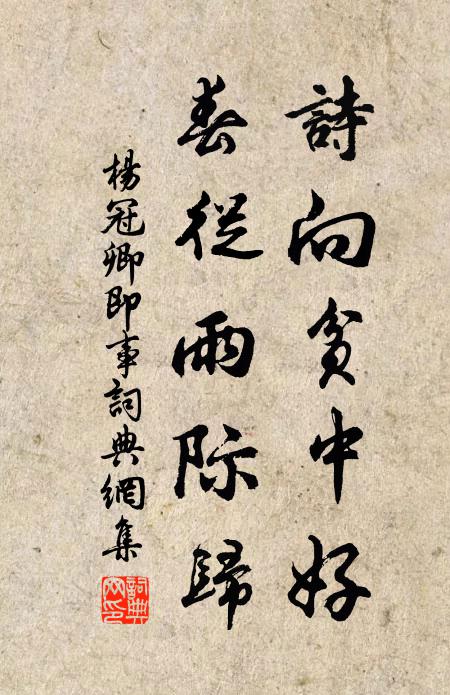 詩向貧中好
春從雨际歸
楊冠卿即事詞典網集
詞典網印